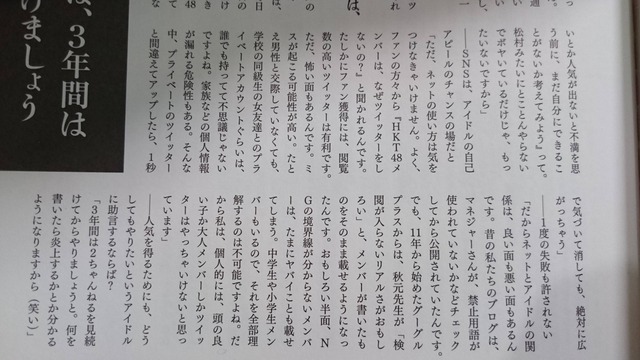 は、3年間は
けましょう
は、
いとか人気が出ないと不満を思
う前に、まだ自分にできるこ
とがないか考えてみよう〟って。
松村みたいにとことんやらない
でボヤいているだけじゃ、もっ
たいないですから」
――SNSは、アイドルの自己
アピールのチャンスの場だと
「ただ、ネットの使い方は気を
つけなきゃいけません。よく、
ファンの方々から『HKT48メ
ンバーは、なぜツイッターをし
ないの？』と聞かれるんです。
たしかにファン獲得には、閲覧
数の高いツイッターは有利です。
ただ、怖い面もあるんです。ミ
スが起こる可能性が高い。たと
え男性と交際していなくても、
学校の同級生の女友達とのプラ
イベートアカウントぐらいは、
誰でも持ってて不思議じゃない
ですよね。家族などの個人情報
が漏れる危険性もある。そんな
中、プライベートのツイッター
と間違えてアップしたら、1秒
で気づいて消しても、絶対に広
がっちゃう」
――1度の失敗も許されない
「だからネットとアイドルの関
係は、良い面も悪い面もあるん
です。昔の私たちのブログは、
マネジャーさんが、禁止用語が
使われていないかなどチェック
してから公開されていたんです。
でも、11年から始めたグーグル
プラスからは、秋元先生が「検
閲が入らないリアルさがおもし
ろい」と、メンバーが書いたも
のをそのまま載せるようになっ
たんです。おもしろい半面、N
Gの境界線が分からないメンバ
ーは、たまにヤバイことも載せ
てしまう。中学生や小学生メン
バーもいるので、それを全部理
解するのは不可能ですよね。だ
から私は、個人的には、頭の良
い子か大人メンバーしかツイッ
ターはやっちゃいけないと思っ
ています」
――人気を得るためにも、どう
してもやりたいというアイドル
に助言するならば？
「3年間は2ちゃんねるを見続
けてからやりましょうと。何を
書いたら炎上するかとか分かる
ようになりますから（笑い）」